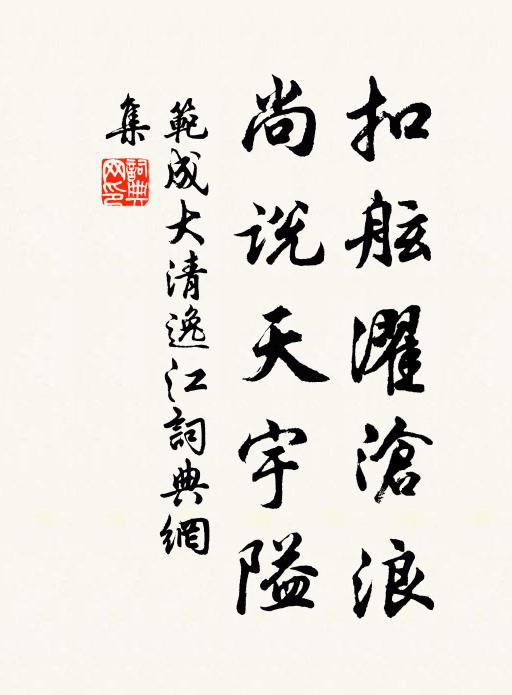 扣舷濯滄浪
尚说天宇隘
範成大清逸江詞典網
集
詞典网印